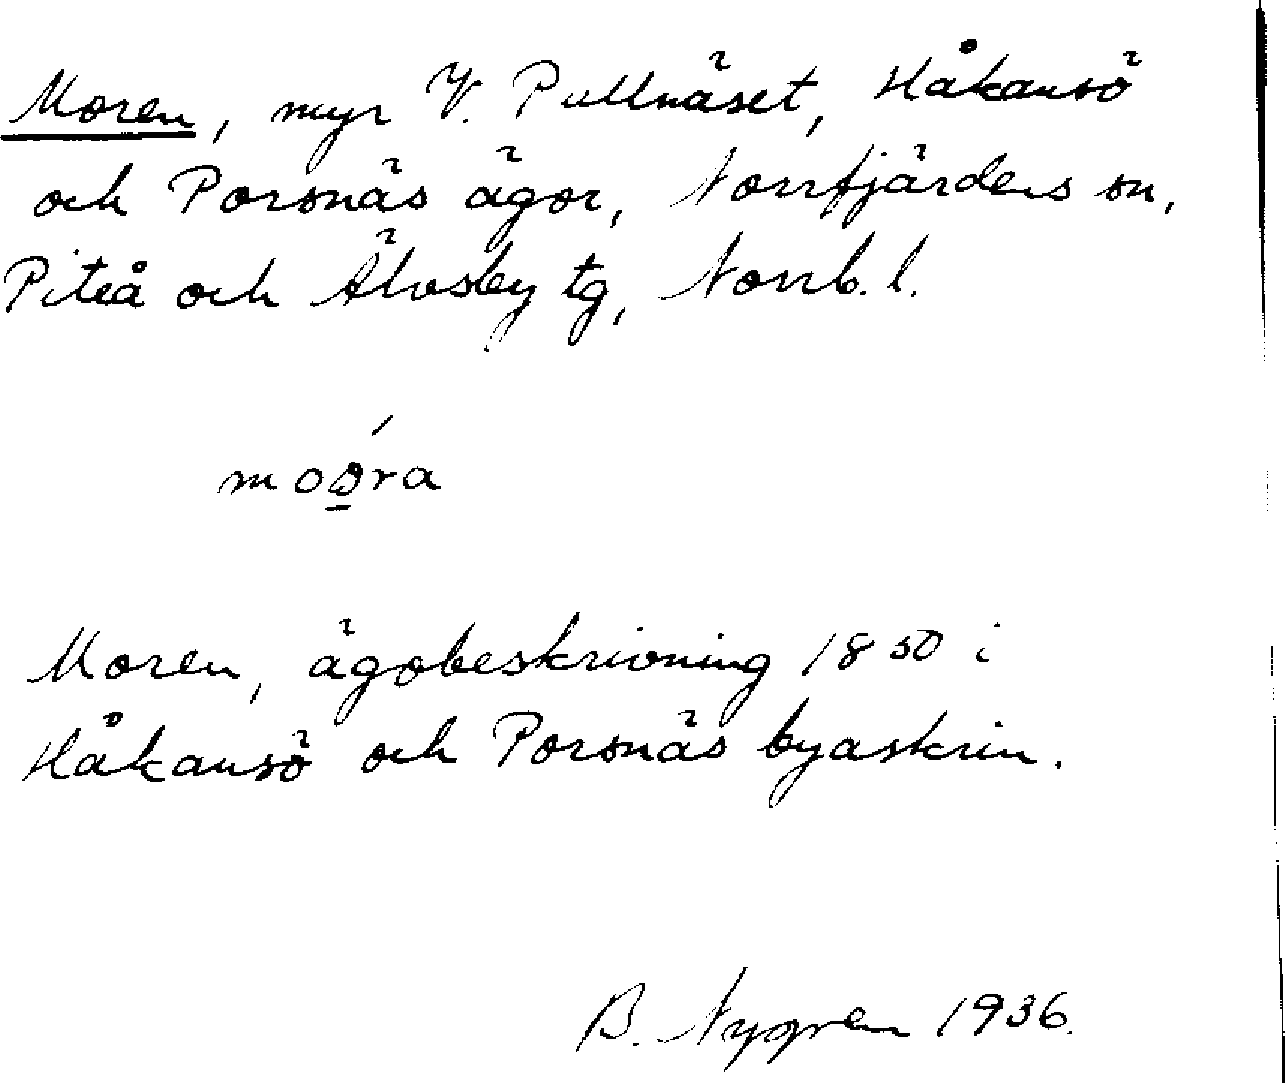 Moren, myr V. Pullnäset, Håkansö
och Porsnäs ägor, Norrfjärdens sn,
Piteå och Älvsby tg, Norrb. l.
Moren, ägobeskrivning 1850 i
Håkansö och Porsnäs byaskrin.
B. Nygren 1936.